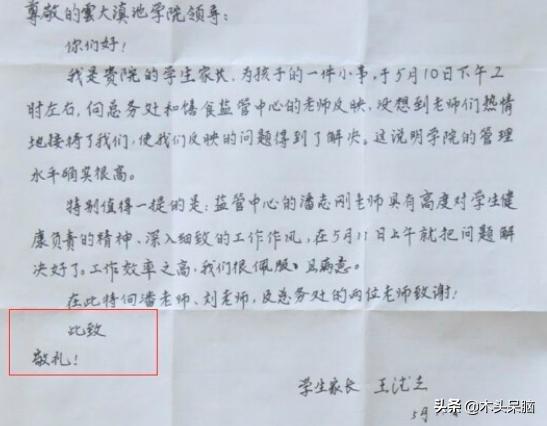 尊敬的雲大滇池学院领导：
你们好！
我是贵院的学生家长，为孩子的一件小事，于5月10日下午2
时左右，向总务处和膳食监管中心的老师反映，没想到老师们热情
地接待了我们，使我们反映的问题得到了解决。这说明学院的管理
水平确实很高。
特别值得一提的是：监管中心的潘志刚老师具有高度对学生健
康负责的精神、深入细致的工作作风，在5月11日上午就把问题解
决好了。工作效率之高，我们很佩服、且满意。
在此特向潘老师、刘老师，及总务处的两位老师致谢！
此致
敬礼！
学生家长 王
5月
头条 @木头呆脑